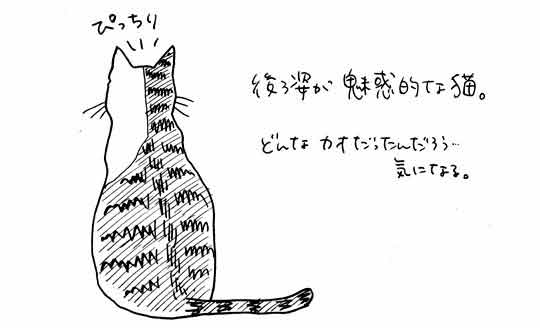 ぴっちり
後ろ姿が魅惑的な猫。
どんなカオだったんだろう…
気になる。